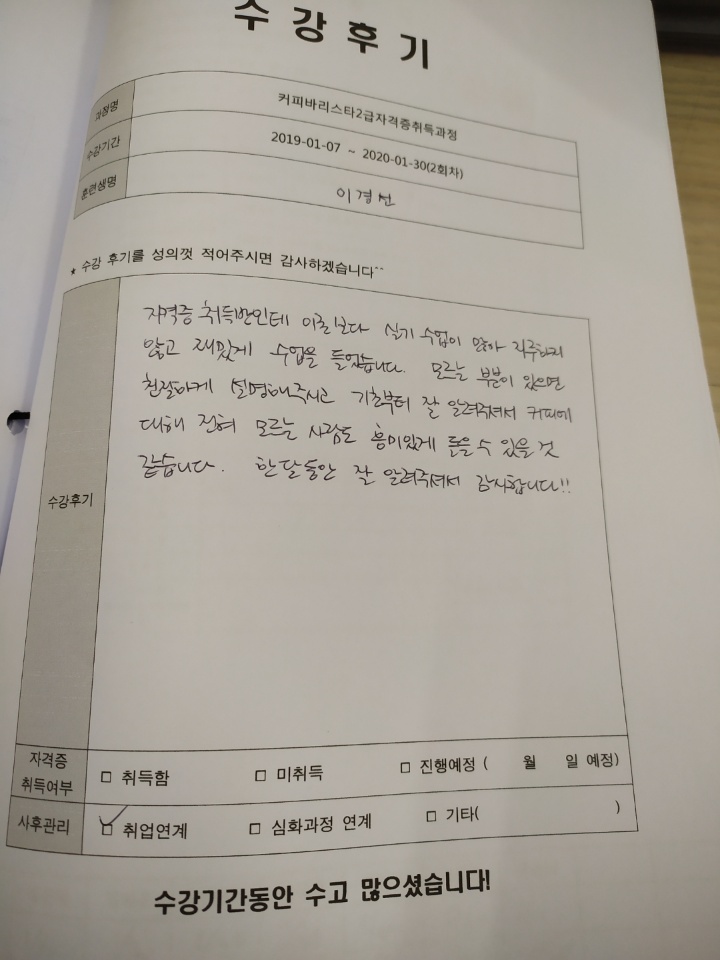 수강후기
과정명 커피바리스타2급자격증취득과정
수강기간 2019-01-07 ~ 2020-01-30(2회차)
훈련생명 이경선
* 수강 후기를 성의껏 적어주시면 감사하겠습니다^^
자격증 취득반인데 이론보다 실기 수업이 많아 지루하지
않고 재밌게 수업을 들었습니다. 모르는 부분이 있으면
친절하게 설명해주시고 기초부터 잘 알려주셔서 커피에
대해 전혀 모르는 사람도 흥미있게 들을 수 있을 것
같습니다. 한달동안 잘 알려주셔서 감사합니다!!
수강후기
자격증
취득여부 □ 취득함 □ 미취득 □ 진행예정 ( 월 일 예정)
사후관리 ☑ 취업연계 □ 심화과정 연계 □ 기타( )
수강기간동안 수고 많으셨습니다!